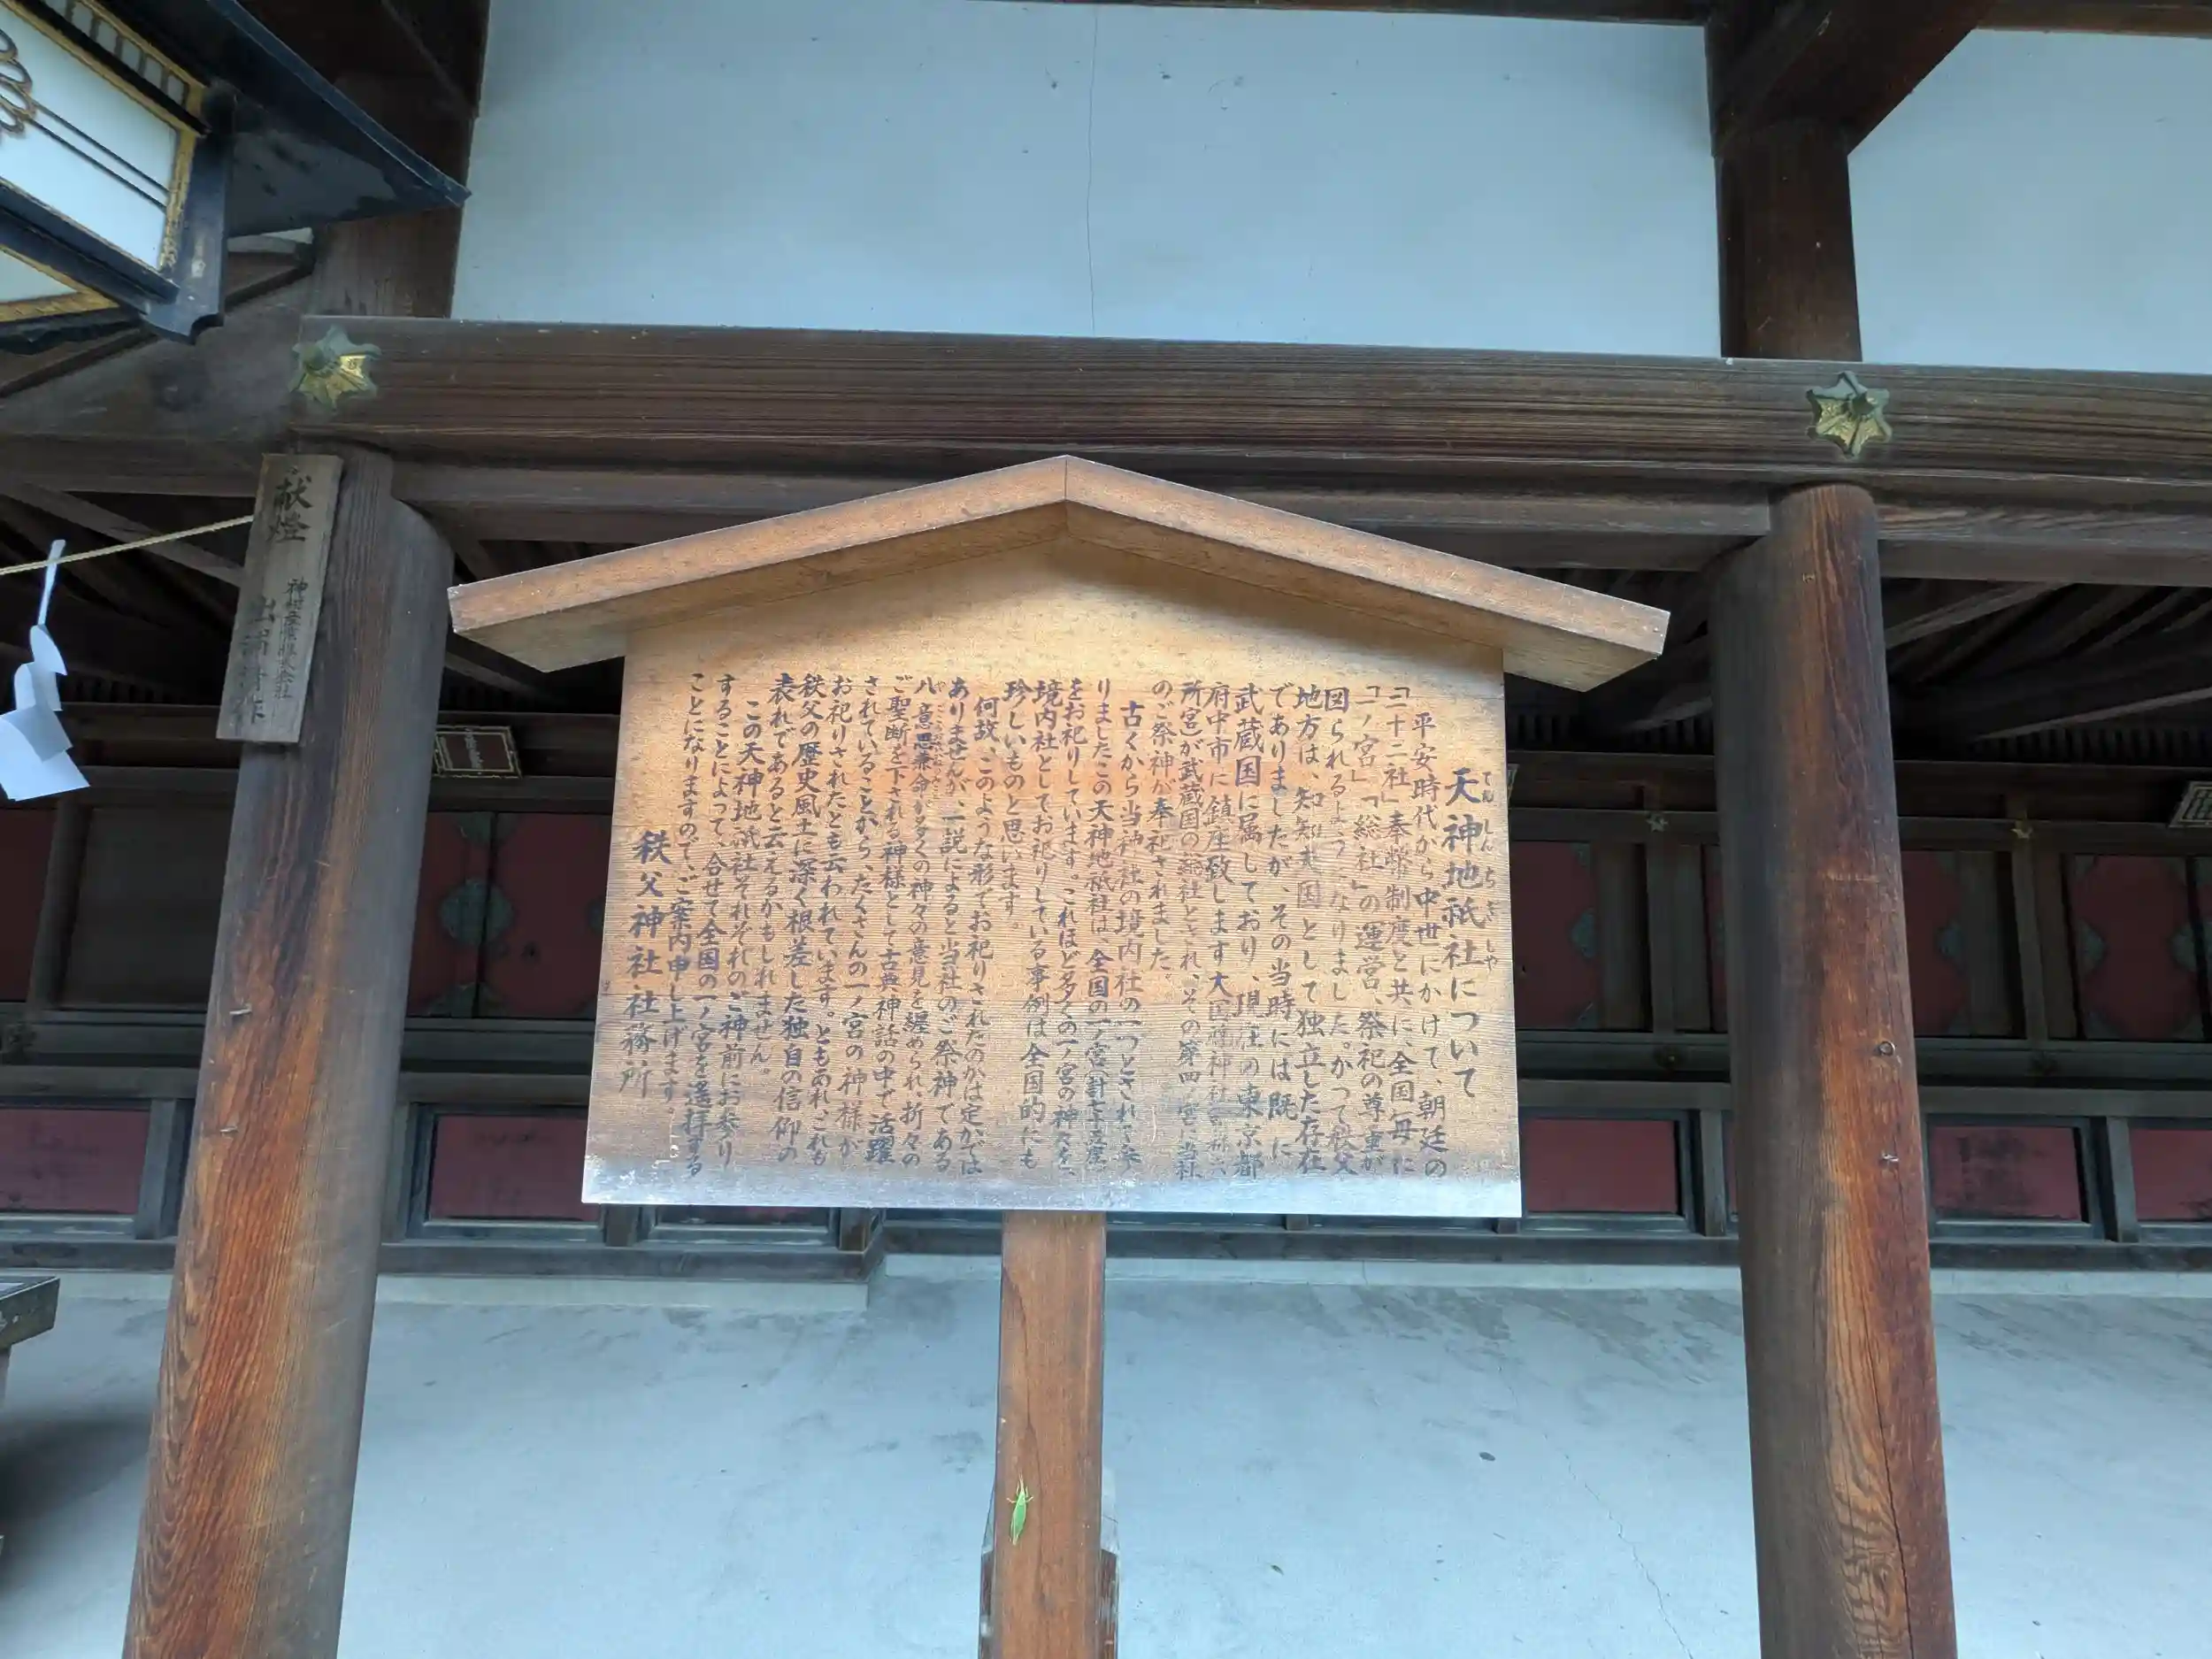 天神地祇社について
てんしんちぎしゃ
平安時代から中世にかけて、朝廷の
「二十二社」奉幣制度と共に、全国毎に
「一ノ宮」「総社」の運営、祭祀の尊重が
図られるようになりました。かつて秩父
地方は、知知夫国として独立した存在
でありましたが、その当時には既に
武蔵国に属しており、現在の東京都
府中市に鎮座致します大国魂神社
所宮)が武蔵国の総社とされ、その第四ノ宮に当社
のご祭神が奉祀されました。
古くから当神社の境内社の一つとされて参
りましたこの天神地祇社は、全国の一ノ宮(計七十五座)
をお祀りしています。これほど多くの一ノ宮の神々を、
境内社としてお祀りしている事例は全国的にも
珍しいものと思います。
何故、このような形でお祀りされたのかは定かでは
ありませんが、一説によると当社のご祭神である
八意思兼命が多くの神々の意見を纏められ、折々の
ご聖断を下される神様として古典神話の中で活躍
されていることから、たくさんの一ノ宮の神様が
お祀りされたとも云われています。ともあれ、これも
秩父の歴史風土に深く根差した独自の信仰の
表れであると云えるかもしれません。
この天神地祇社それぞれのご神前にお参り
することによって、合せて全国の一ノ宮を遥拝する
ことになりますので、ご案内申し上げます。
秩父神社社務所
献燈